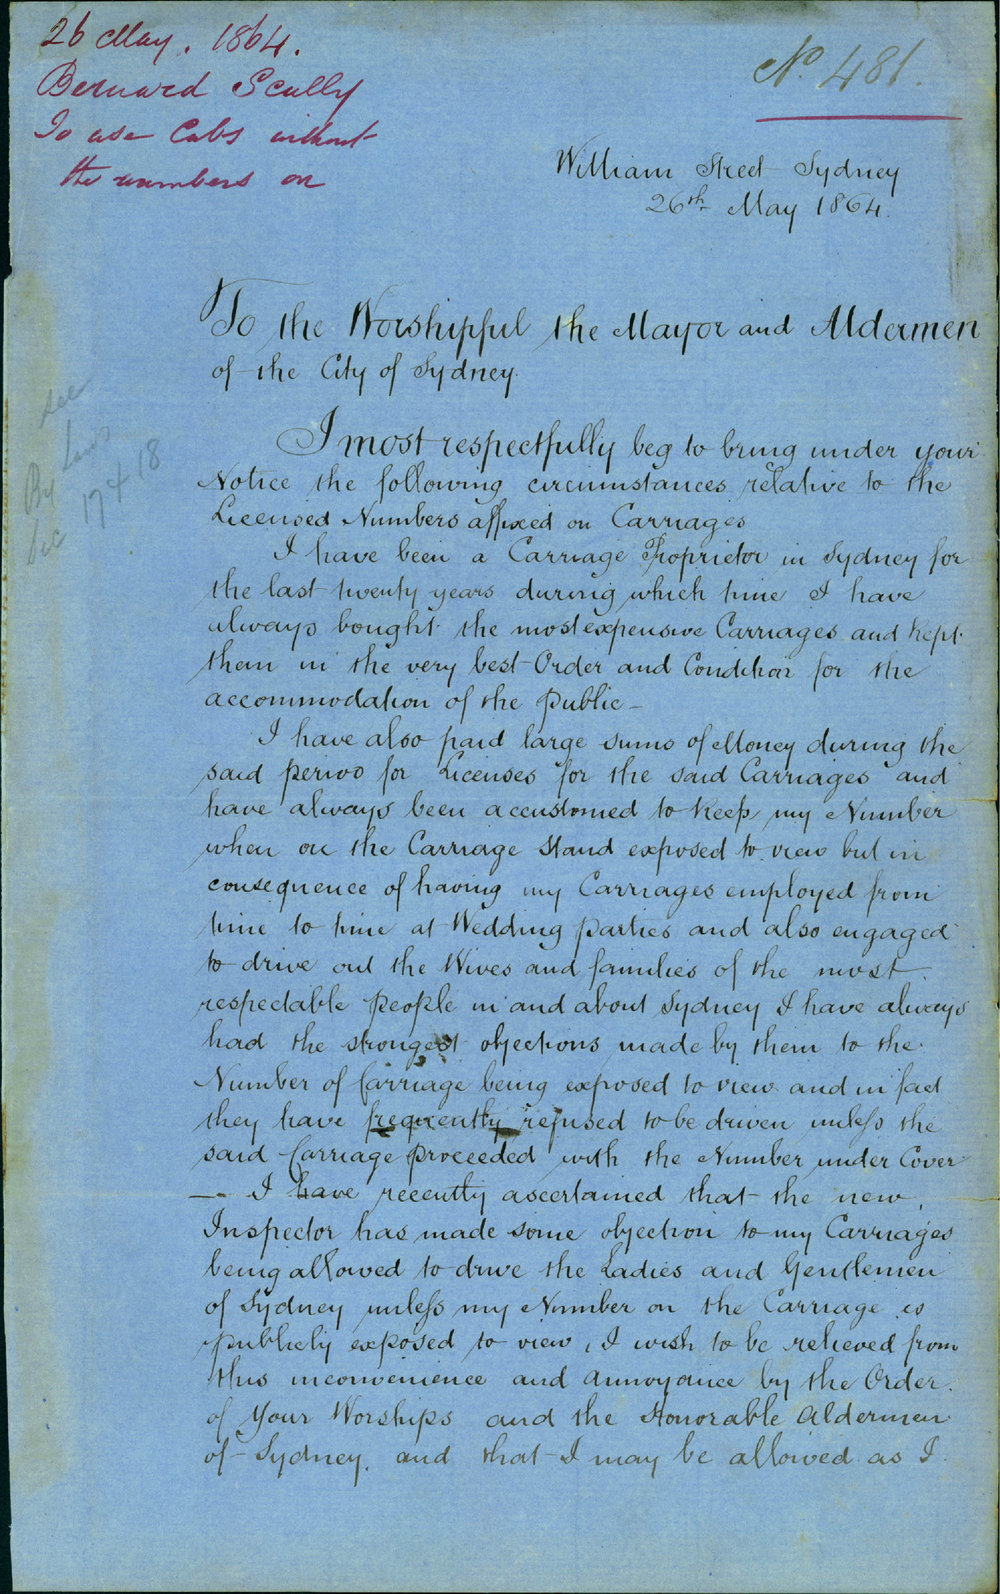 26 May. 1864.
Bernard Scully
To use Cabs without
the numbers on
No. 481.
William Street Sydney
26th May 1864.
To the Worshipful the Mayor and Aldermen
of the City of Sydney.
See
By Laws
Sec 17 & 18
I most respectfully beg to bring under your
Notice the following circumstances relative to the
Licensed Numbers affixed on Carriages
I have been a Carriage Proprietor in Sydney for
the last twenty years during which time I have
always bought the most expensive Carriages and Kept
them in the very best Order and Condition for the
accommodation of the Public –
I have also paid large sums of Money during the
said period for Licenses for the said Carriages and
have always been accustomed to Keep my Number
when on the Carriage Stand exposed to view but in
consequence of having my Carriages employed from
time to time at Wedding parties and also engaged
to drive out the Wives and families of the most
respectable people in and about Sydney I have always
had the strongest objections made by them to the
Number of Carriage being exposed to view and in fact
they have frequently refused to be driven unless the
said Carriage proceeded with the Number under Cover
— I have recently ascertained that the new
Inspector has made some objection to my Carriages
being allowed to drive the Ladies and Gentlemen
of Sydney unless my Number on the Carriage is
publicly exposed to view, I wish to be relieved from
this inconvenience and annoyance by the Order
of Your Worships and the Honorable Aldermen
of Sydney. and that I may be allowed as I